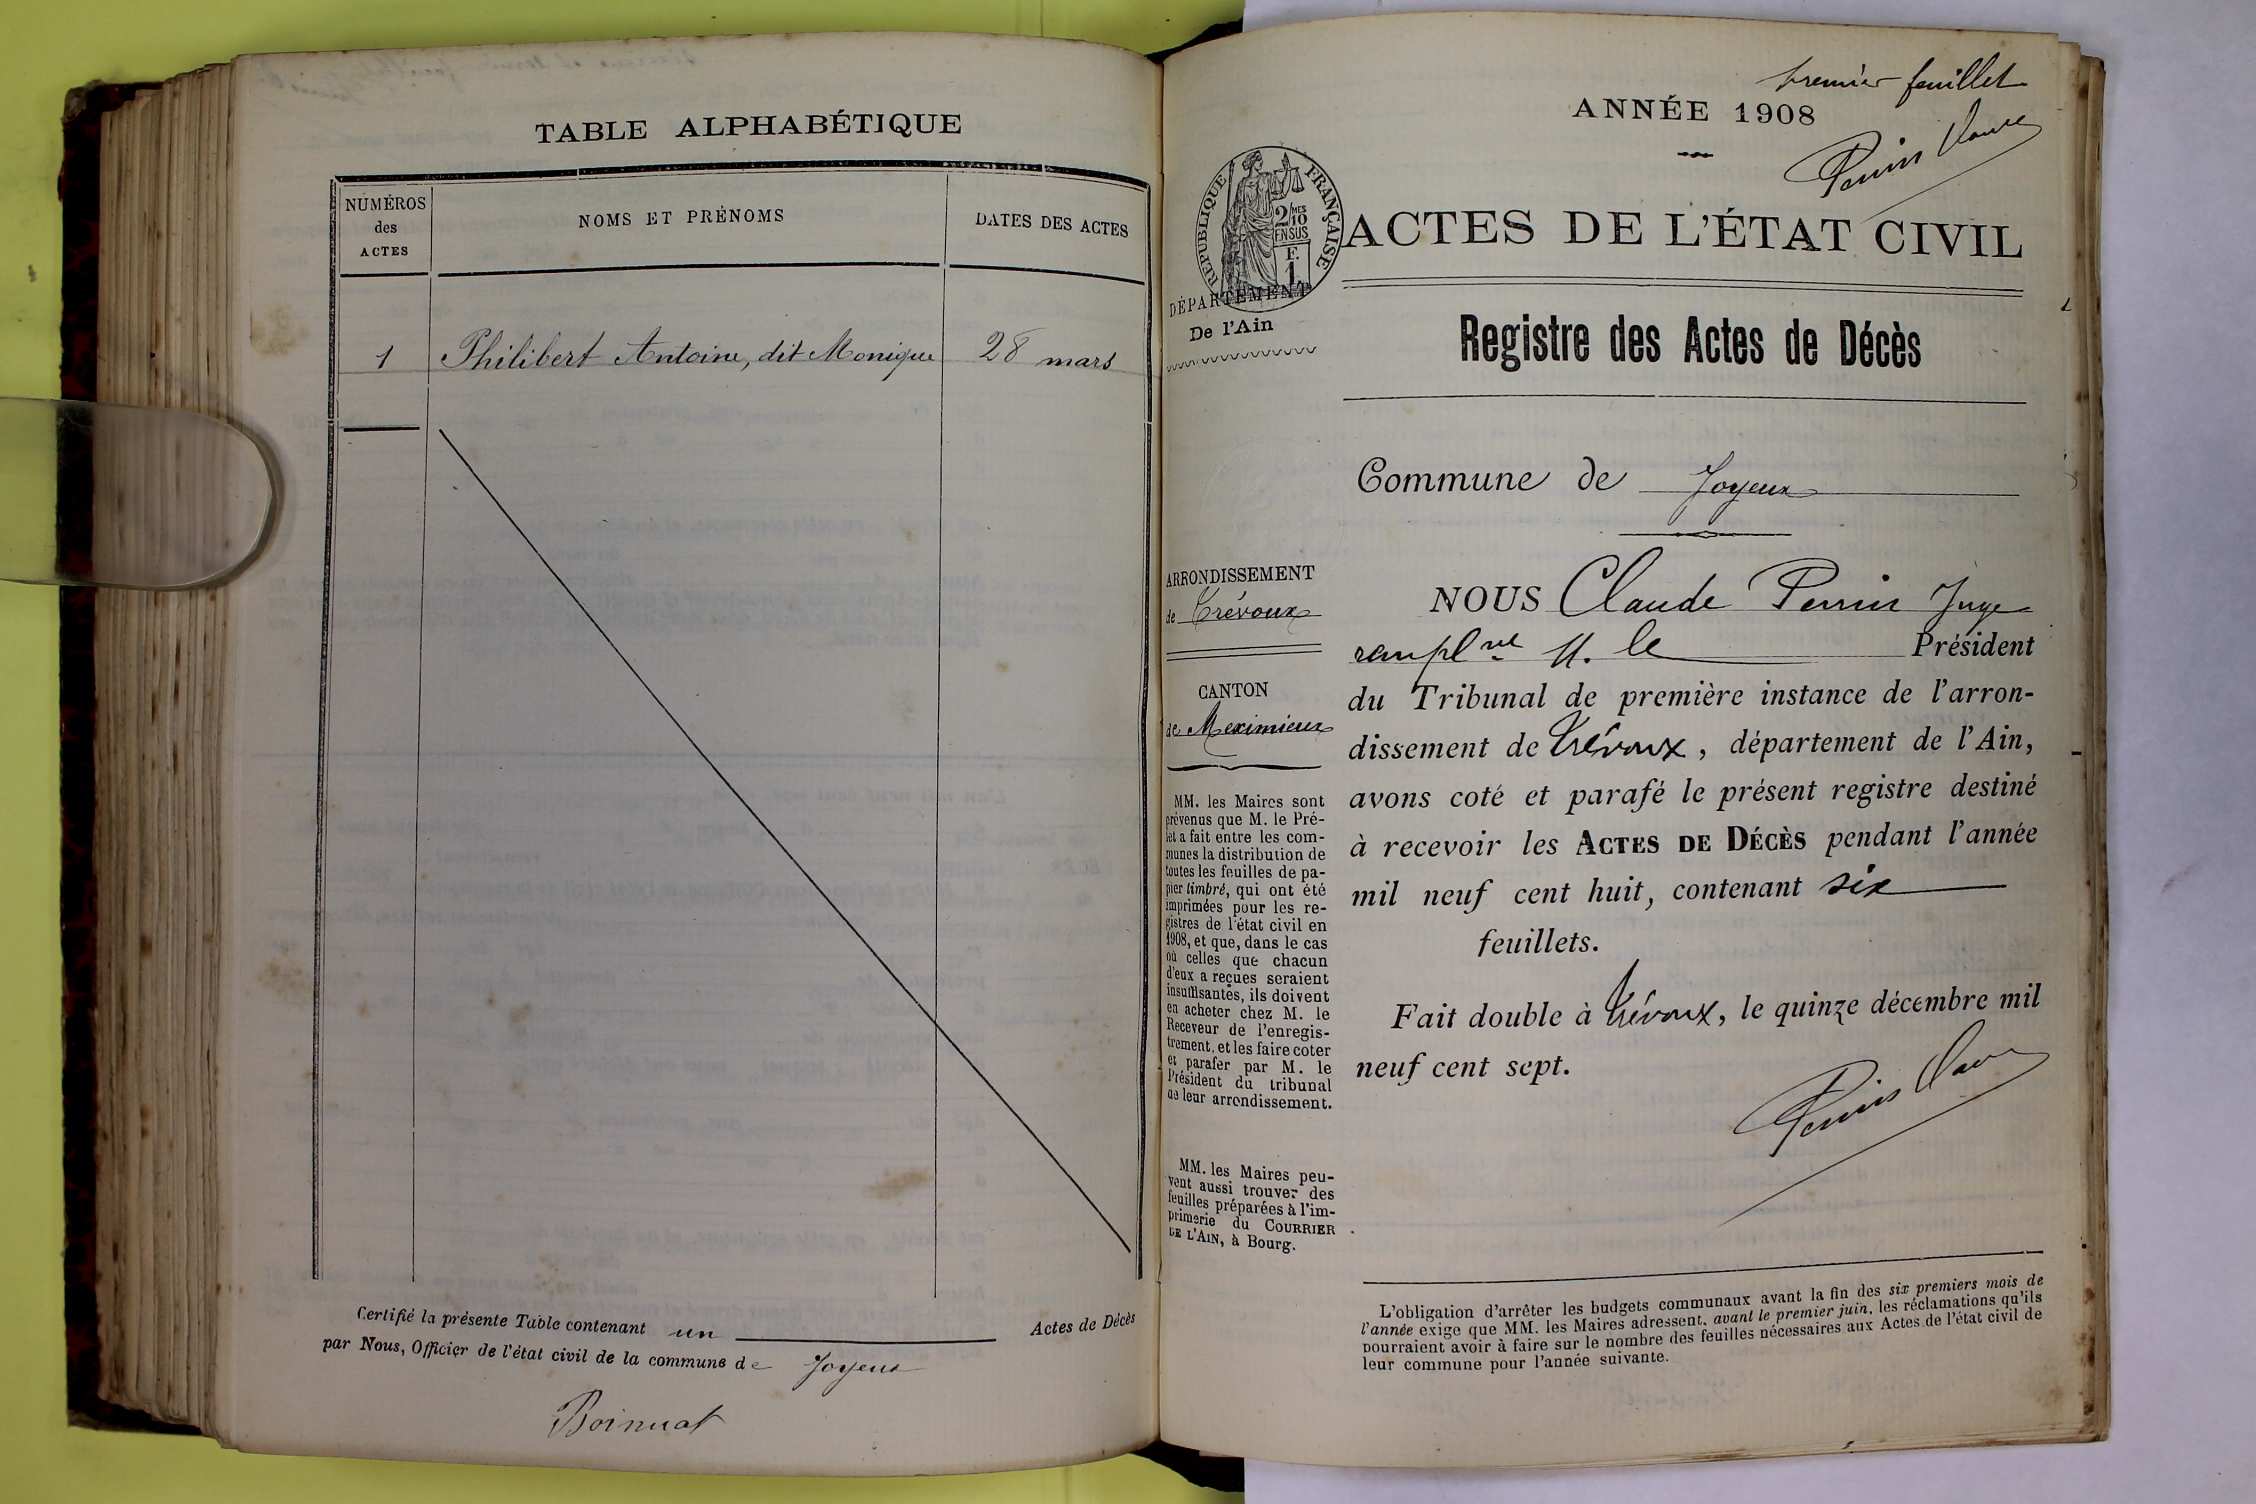 TABLE ALPHABÉTIQUE
NUMÉROS
des
ACTES
NOMS ET PRÉNOMS
DATES DES ACTES
1 Philibert Antoine, dit Monique 28 mars
Certifié la présente Table contenant un Actes de Décès
par Nous, Officier de l'état civil de la commune de Joyeux
premier feuillet
ANNÉE 1908
RÉPUBLIQUE FRANÇAISE
2/MES
10
EN SUS
F.
1
ACTES DE L'ÉTAT CIVIL
DÉPARTEMENT
De l'Ain
Registre des Actes de Décès
Commune de Joyeux
ARRONDISSEMENT
de Trévoux
CANTON
de Meximieux
MM. les Maires sont
prévenus que M. le Pré-
fet a fait entre les com-
munes la distribution de
toutes les feuilles de pa-
pier timbré, qui ont été
imprimées pour les re-
gistres de l'état civil en
1908, et que, dans le cas
où celles que chacun
d'eux a reçues seraient
insuffisantes, ils doivent
en acheter chez M. le
Receveur de l'enregis-
trement, et les faire coter
et parafer par M. le
Président du tribunal
de leur arrondissement.
MM. les Maires peu-
vent aussi trouver des
feuilles préparées à l'im-
primerie du COURRIER
DE L'AIN, à Bourg.
NOUS Claude Perrin Juge
rempl M. le Président
du Tribunal de première instance de l'arron-
dissement de Trévoux, département de l'Ain,
avons coté et parafé le présent registre destiné
à recevoir les ACTES DE DÉCÈS pendant l'année
mil neuf cent huit, contenant six
feuillets.
Fait double à Trévoux, le quinze décembre mil
neuf cent sept.
L'obligation d'arrêter les budgets communaux avant la fin des six premiers mois de
l'année exige que MM. les Maires adressent, avant le premier juin, les réclamations qu'ils
pourraient avoir à faire sur le nombre des feuilles nécessaires aux Actes de l'état civil de
leur commune pour l'année suivante.